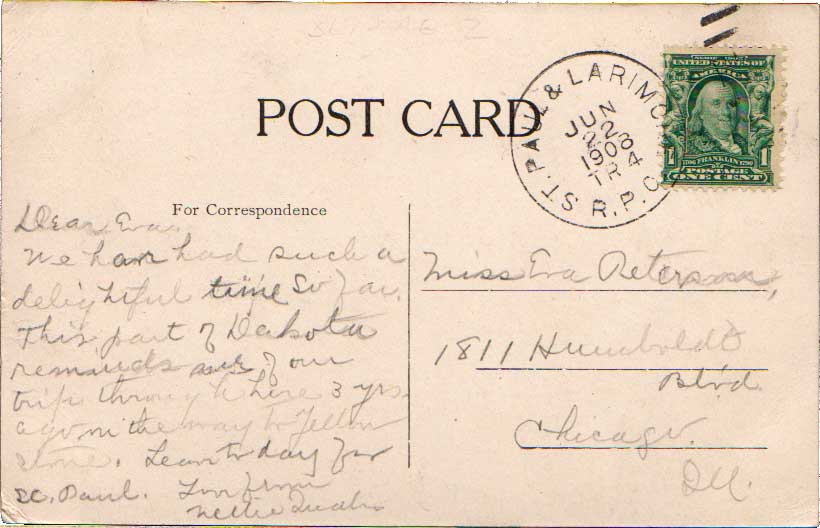 POST CARD
ST. PAUL & LARIMO
R.P.O.
JUN
22
1908
TR 4
SERIES 1902
UNITED STATES OF
AMERICA
1 1
1706 FRANKLIN 1790
POSTAGE
ONE CENT
For Correspondence
Dear Eva.
We have had such a
delightful time so far.
This part of Dakota
reminds me of our
trip through here 3 yrs.
ago on the way to Yellow
stone. Leave to day for
St. Paul. Love from
Nellie
Miss Eva Peterson,
1811 Humboldt
Blvd.
Chicago.
Ill.